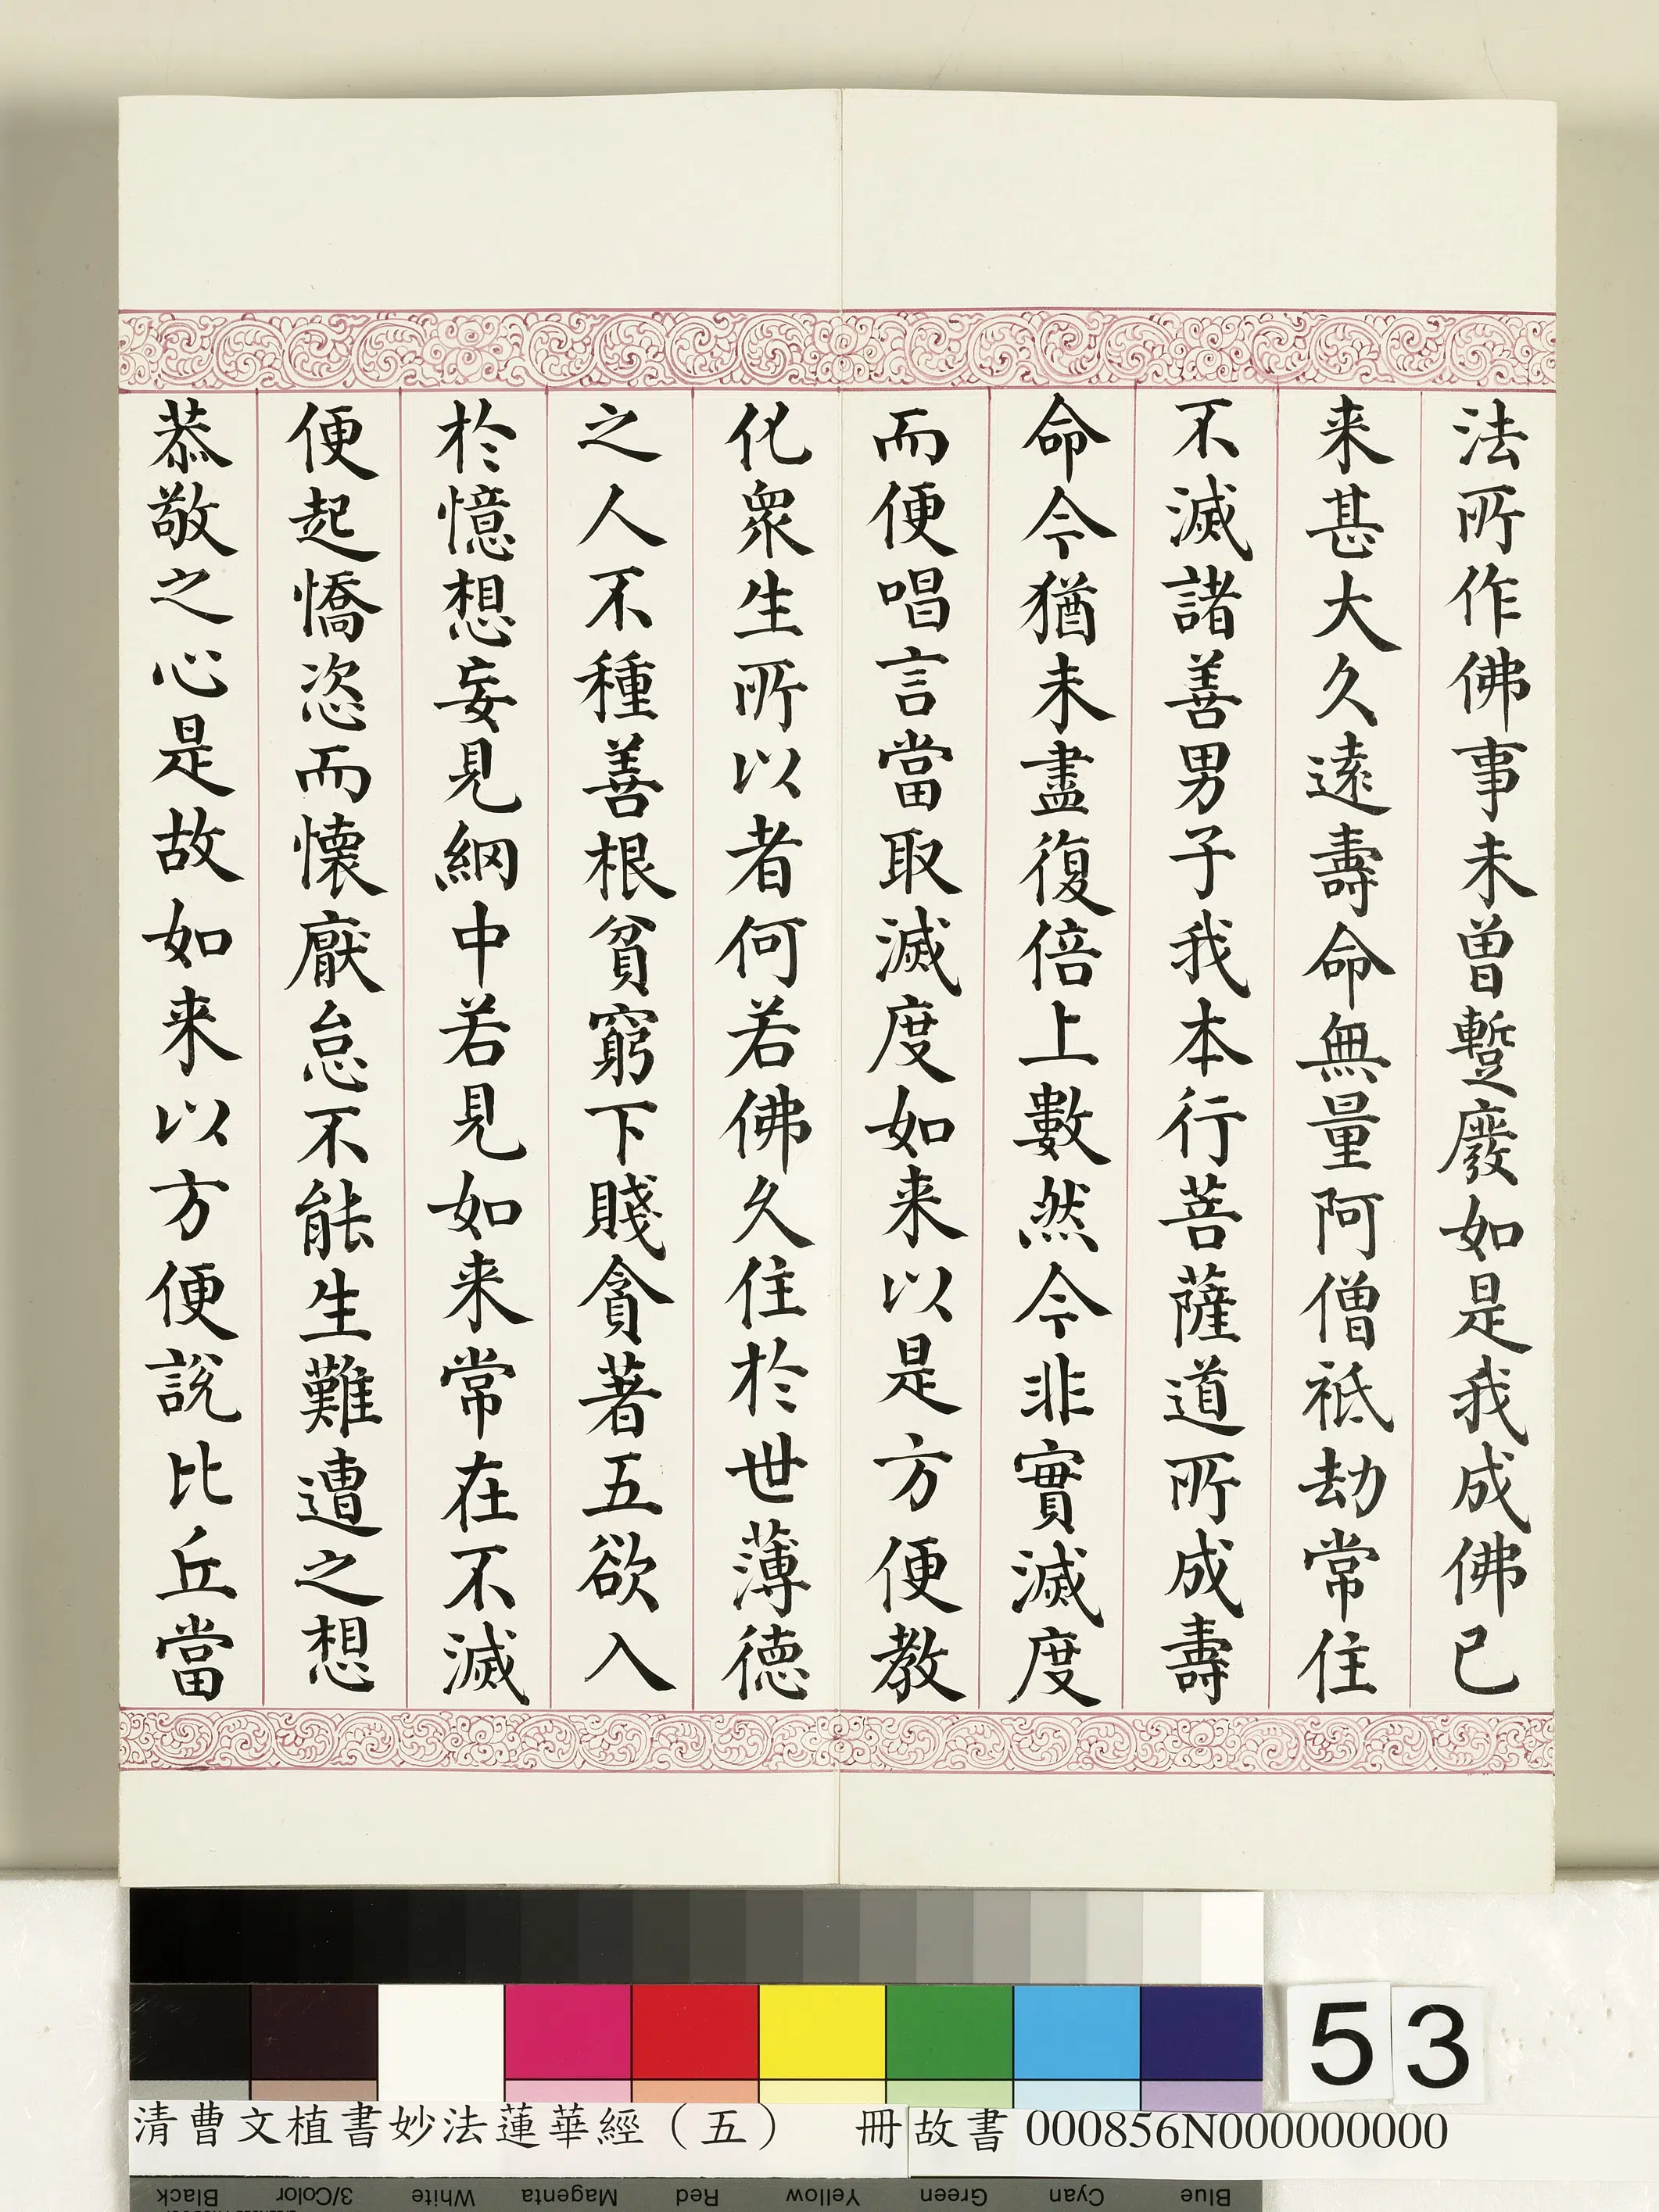 法所作佛事未曾蹔廢如是我成佛已
来甚大久遠壽命無量阿僧祇劫常住
不滅諸善男子我本行菩薩道所成壽
命今猶未盡復倍上數然今非實滅度
而便唱言當取滅度如来以是方便教
化眾生所以者何若佛久住於世薄德
之人不種善根貧窮下賤貪著五欲入
於憶想妄見網中若見如来常在不滅
便起憍恣而懷厭怠不能生難遭之想
恭敬之心是故如来以方便說比丘當
53
清曹文植書妙法蓮華經（五） 冊故書 000856N000000000
Black 3/Color White Magenta Red Yellow Green Cyan Blue